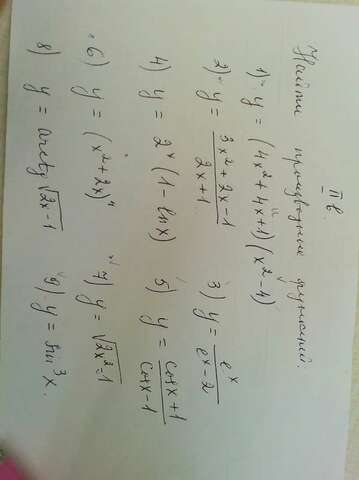 II в.
Найти производные функций.
1) y = (4x² + 4x + 1)(x² - 4)
2) y = (3x² + 2x - 1)/(2x + 1) 3) y = eˣ/(eˣ - 2)
4) y = 2ˣ (1 - ln x) 5) y = (cos x + 1)/(cos x - 1)
6) y = (x² + 2x)⁴ 7) y = √(2x² - 1)
8) y = arctg √(2x - 1) 9) y = sin³ x.